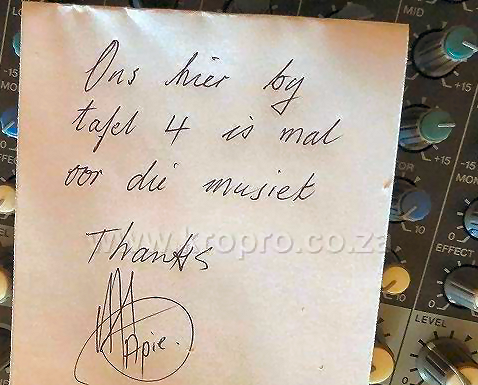 MID
Ons hier by
tafel 4 is mal
oor die musiek
Thanks
www.kropro.co.za
Apie.
-15
+15
-15
+15
MON
EFFECT
10
EFFECT
10
LEVEL